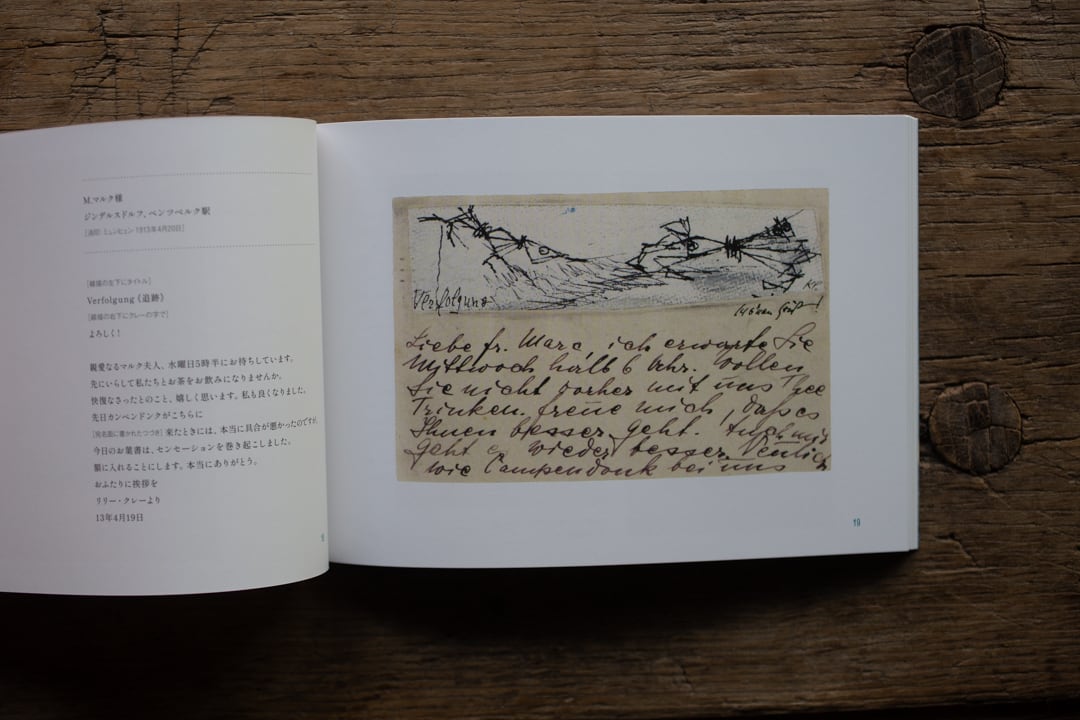 M.マルク様
ジンデルスドルフ、ペンツベルク駅
[消印:ミュンヒェン 1913年4月20日]
[線描の左下にタイトル]
Verfolgung《追跡》
[線描の右下にクレーの字で]
よろしく!
親愛なるマルク夫人、水曜日5時半にお待ちしています。
先にいらして私たちとお茶をお飲みになりませんか。
快復なさったとのこと、嬉しく思います。私も良くなりました。
先日カンペンドンクがこちらに
[宛名面に書かれたつづき] 来たときには、本当に具合が悪かったのですが。
今日のお葉書は、センセーションを巻き起こしました。
額に入れることにします。本当にありがとう。
おふたりに挨拶を
リリー・クレーより
13年4月19日
Verfolgung
Kl.
Schönen Gruß!
Liebe fr. Marc, ich erwarte Sie
Mittwoch halb 6 Uhr. Wollen
Sie nicht vorher mit uns Thee
Trinken. freue mich, dass es
Ihnen besser geht. Auch mir
geht es wieder besser. Neulich
wie Campendonk bei uns
19